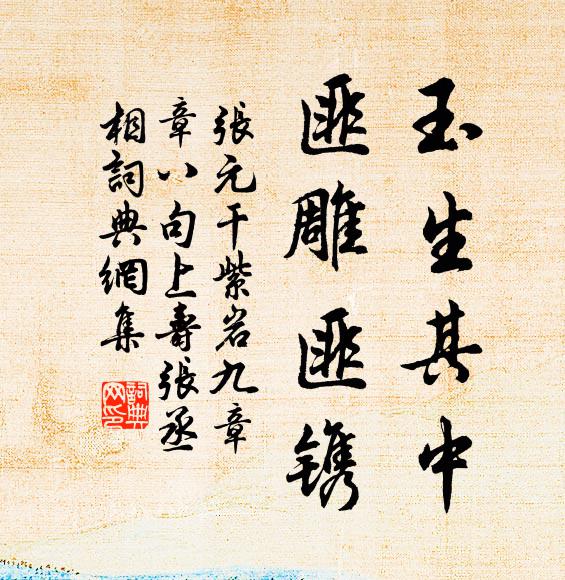 玉生其中
匪雕匪镌
張元干紫岩九章
章八句上壽張丞
相詞典網集
詞典网印